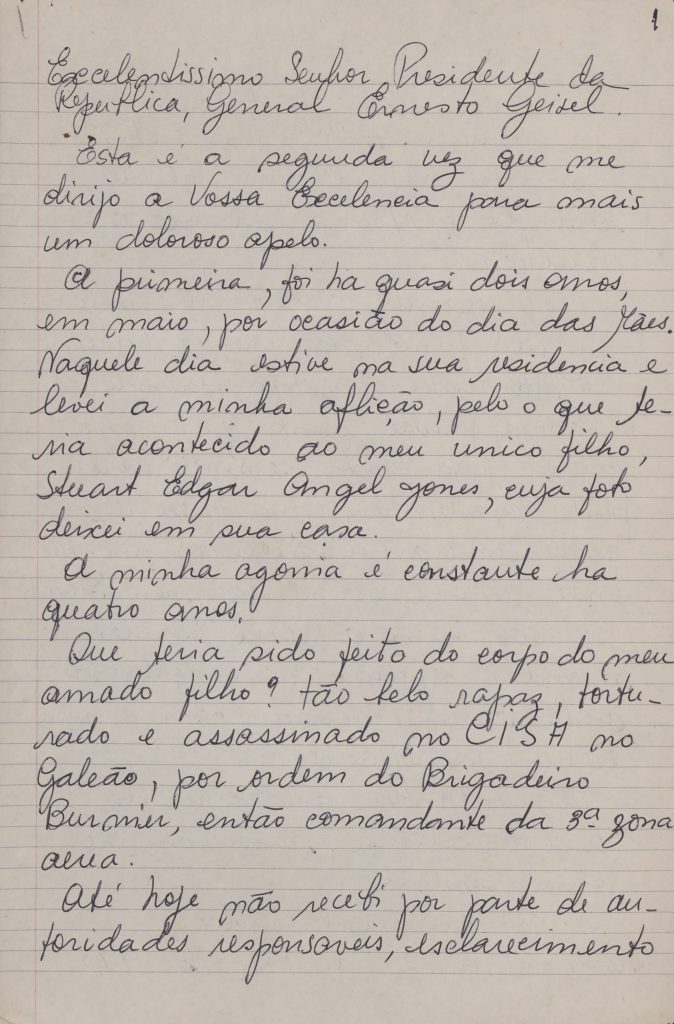 1
Excelentissimo Senhor Presidente da
Republica, General Ernesto Geisel.
Esta é a segunda vez que me
dirijo a Vossa Excelencia para mais
um doloroso apelo.
A primeira, foi ha quasi dois anos,
em maio, por ocasião do dia das Mães.
Naquele dia estive na sua residencia e
levei a minha aflição, pelo o que te-
ria acontecido ao meu unico filho,
Stuart Edgar Angel Jones, cuja foto
deixei em sua casa.
A minha agonia é constante ha
quatro anos.
Que teria sido feito do corpo do meu
amado filho? tão belo rapaz, tortu-
rado e assassinado no CISA no
Galeão, por ordem do Brigadeiro
Burnier, então comandante da 3ª zona
aerea.
Até hoje não recebi por parte de au-
toridades responsaveis, esclarecimento